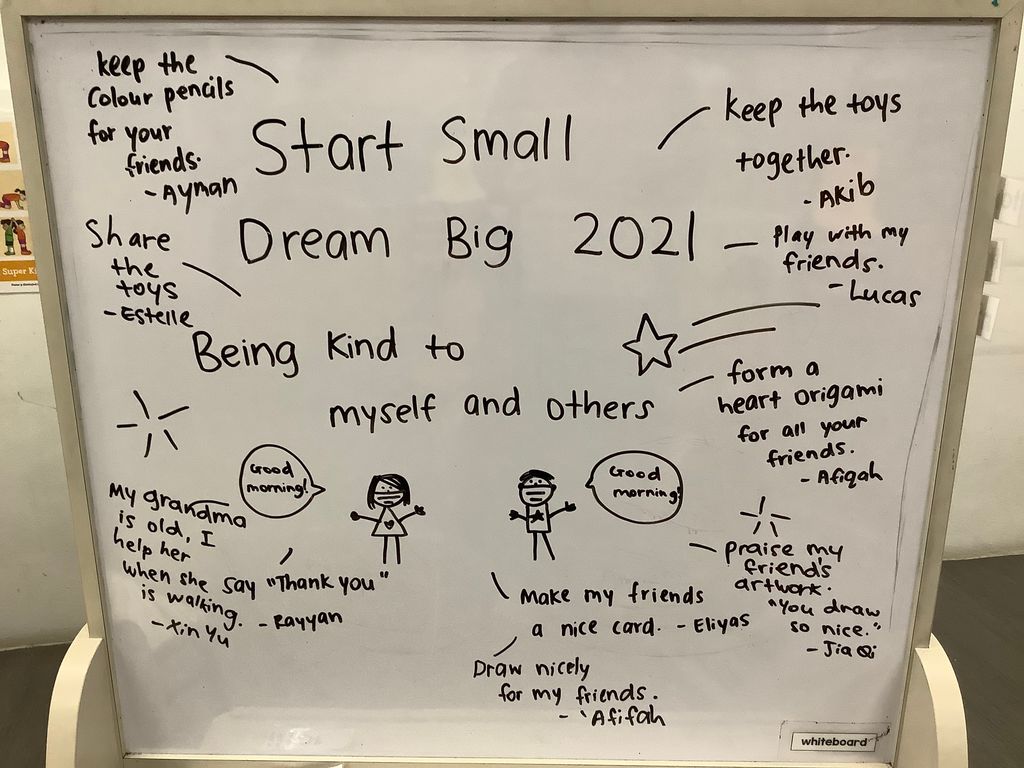 Start Small
Dream Big 2021
Being Kind to
myself and others
keep the
Colour pencils
for your
friends.
- Ayman
Share
the
toys
- Estelle
keep the toys
together.
- Akib
Play with my
friends.
- Lucas
form a
heart origami
for all your
friends.
- Afiqah
Good
morning!
Good
morning!
My grandma
is old, I
help her
when she
is walking.
- Xin Yu
say "Thank you"
- Rayyan
Make my friends
a nice card. - Eliyas
Draw nicely
for my friends.
- Afifah
praise my
friend's
artwork.
"You draw
so nice."
- Jia Qi
whiteboard